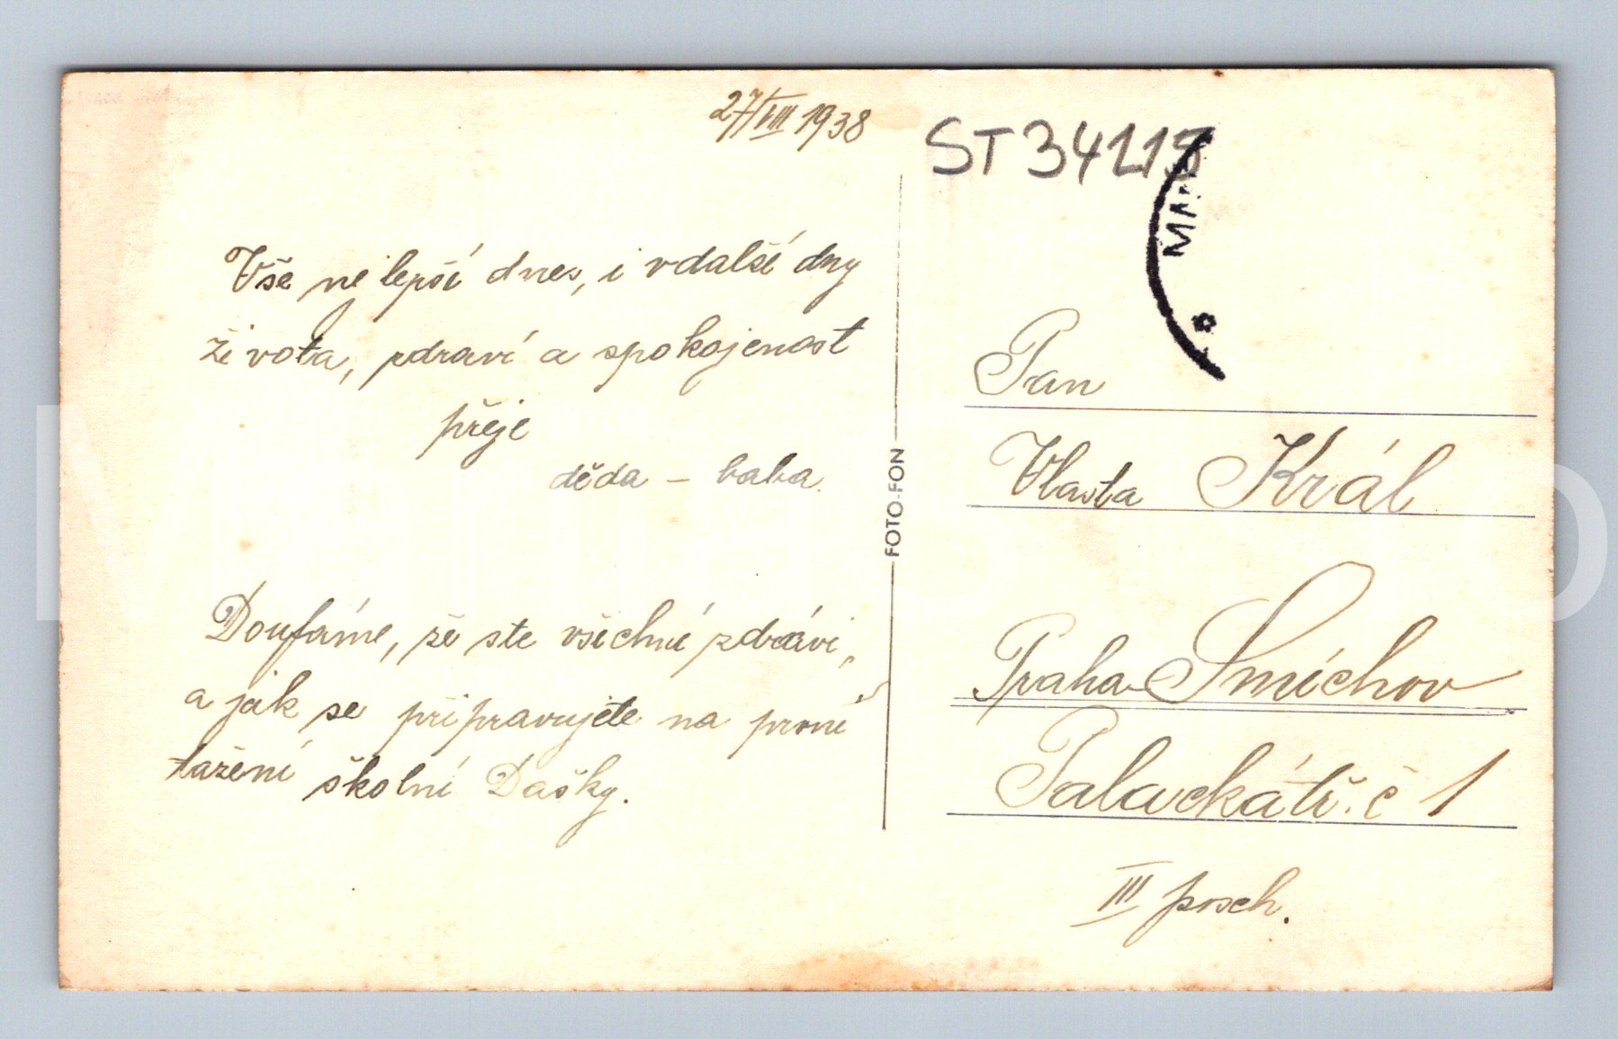 27/VIII 1938
ST 34118
Vše nejlepší dnes, i v další dny
života, zdraví a spokojenost
přeje
děda – baba.
Doufáme, že ste všichni zdrávi,
a jak se připravujete na první
tažení školní Dašky.
FOTO-FON
Pan
Vlasta Král
Praha-Smíchov
Palackátř. č 1
III posch.